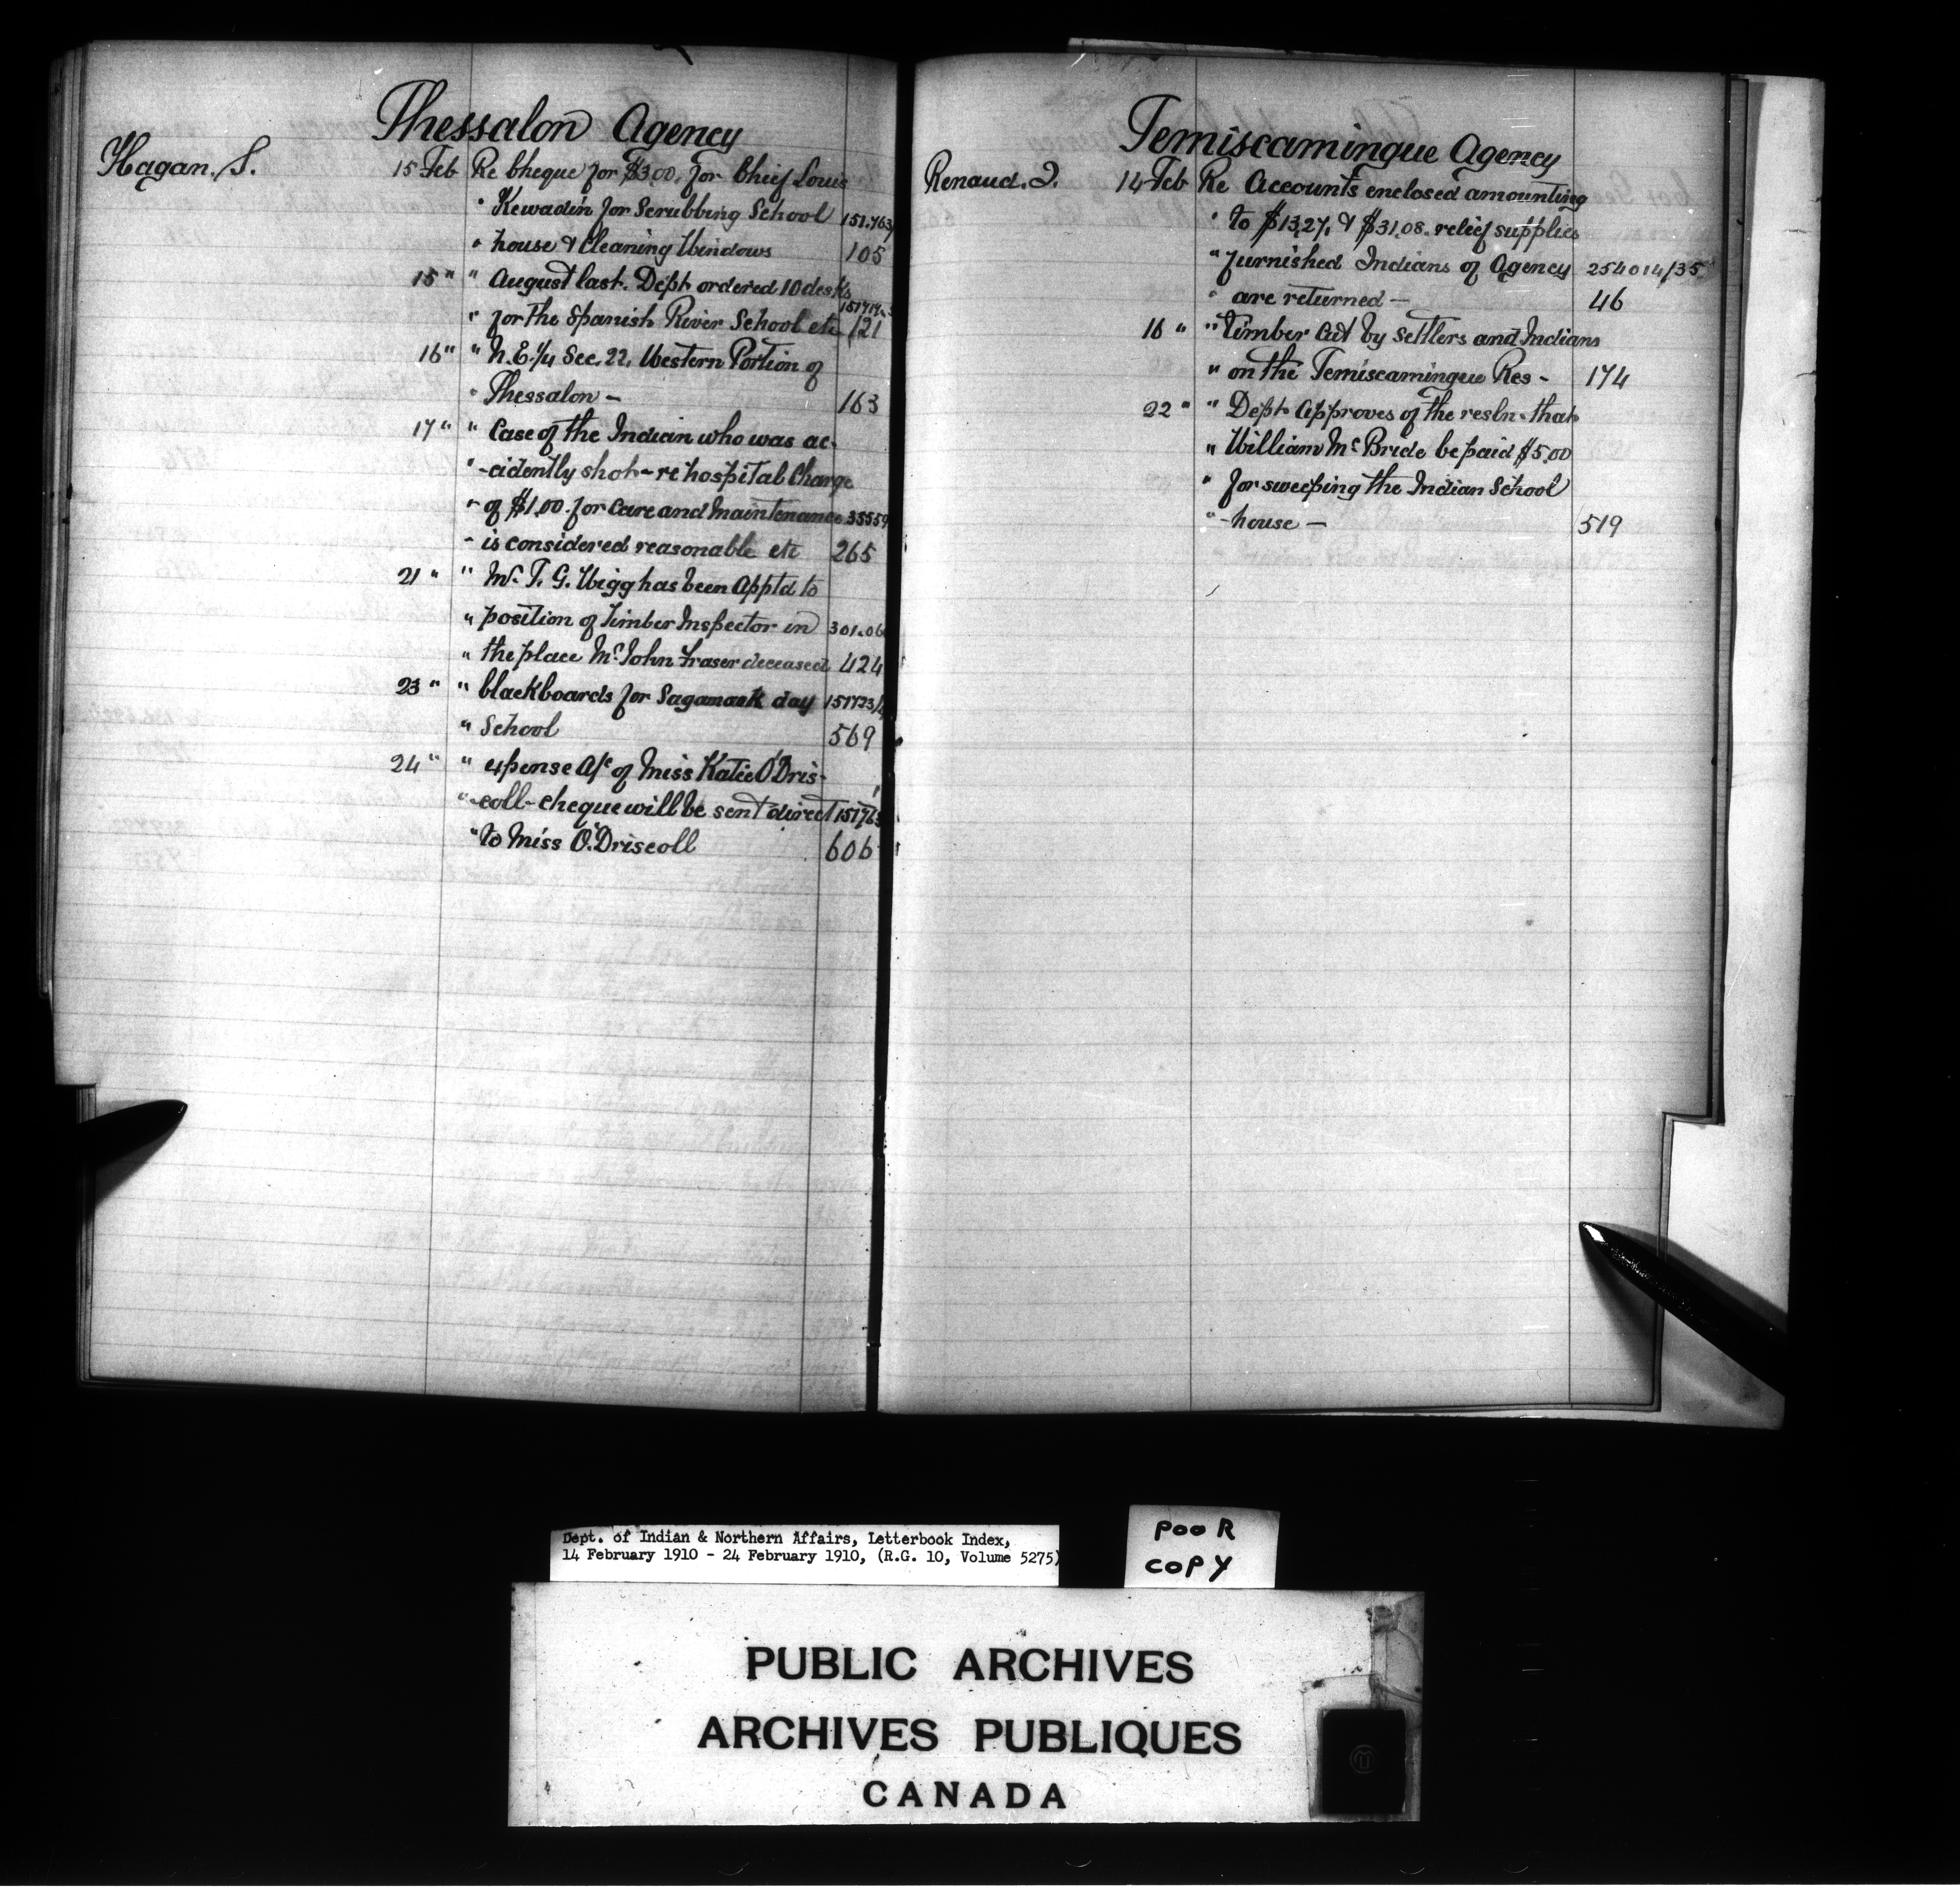 Thessalon Agency
Hagan. S. 15 Feb Re Cheque for $3.00. for Chief Louis
" Kewadin for Scrubbing School 151.763/
" house & Cleaning Windows 105
15 " " August last. Dept ordered 10 desks
" for the Spanish River School etc 121
16 " " N.E. 1/4 Sec. 22. Western Portion of
" Thessalon - 163
17 " " Case of the Indian who was ac-
" -cidently shot - re hospital Charge
" of $1.00. for Care and Maintenance 35559
" is considered reasonable etc 265
21 " " Mr. T. G. Wigg has been Apptd to
" position of Timber Inspector in 301.06
" the place Mr. John Fraser deceased 424
23 " " blackboards for Sagamook day 151723/
" School 569
24 " " expense A/c of Miss Katie O'Dris-
" -coll - cheque will be sent direct 151763
" to Miss O'Driscoll 606
Temiscamingue Agency
Renaud. 14 Feb Re Accounts enclosed amounting
" to $13.27. & $31.08. relief supplies
" furnished Indians of Agency 254014/35
" are returned - 46
16 " " Timber Cut by Settlers and Indians
" on the Temiscamingue Res - 174
22 " " Dept Approves of the resln. that
" William McBride be paid $5.00
" for sweeping the Indian School
" -house - 519
Dept. of Indian & Northern Affairs, Letterbook Index,
14 February 1910 - 24 February 1910, (R.G. 10, Volume 5275)
POOR
COPY
PUBLIC ARCHIVES
ARCHIVES PUBLIQUES
CANADA